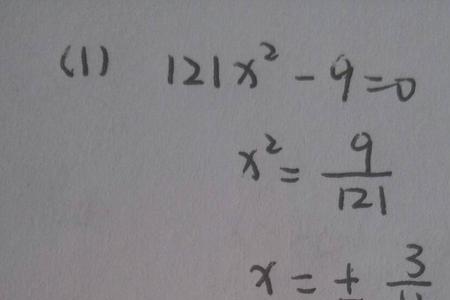 (1) 121x² - 9 = 0
x² = 9/121
x = ± 3/